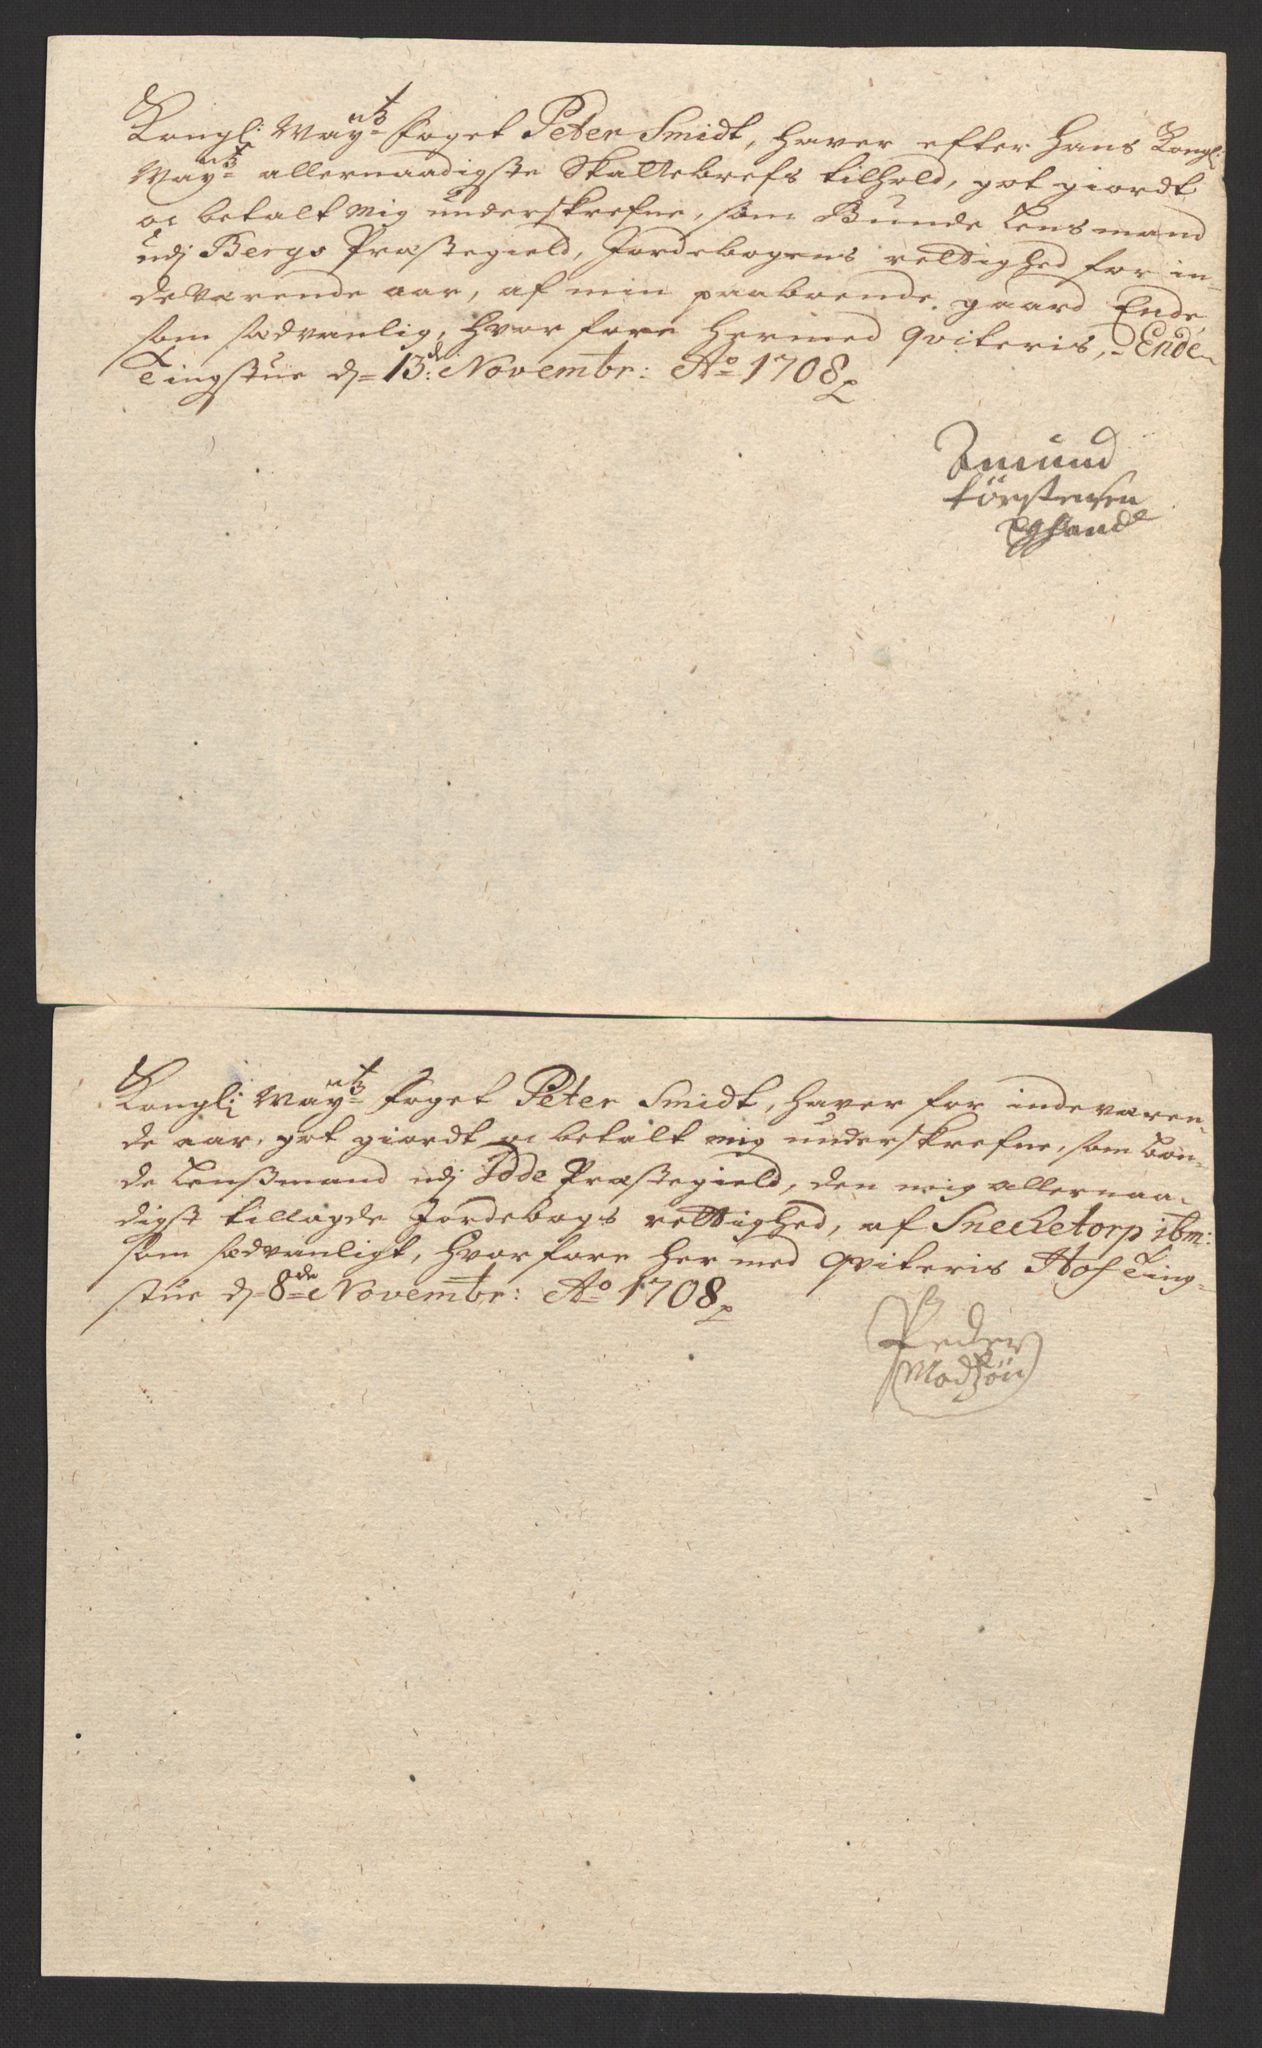 Kongl: May:tz foget Peter Smidt, haver efter Hans Kongl:
May:tz allernaadigste Skattebrefs tilhold, got giordt
oc betalt mig underskrefne, som Bunde Lensmand
udj Bergs Præstegield, Jordebogens rettighed for in-
deværende aar, af min paaboende gaard Ende,
som sædvanlig, hvorfore hermed qviteris, Ende
Tingstue d= 13de: Novembr: Ao 1708
Amund
törstensen
Egghand
Kongl: May:tz foget Peter Smidt, haver for indeværen-
de aar, got giordt oc betalt mig underskrefne, som Bon-
de Lensmand udj Idde Præstegield, den mig allernaa-
digst tillagde Jordebogs rettighed, af Snechetorp ibm:
som sædvanligt, hvorfore her med qviteris Hof Ting-
stue d= 8de Novembr: Ao 1708
Peder
Madsön